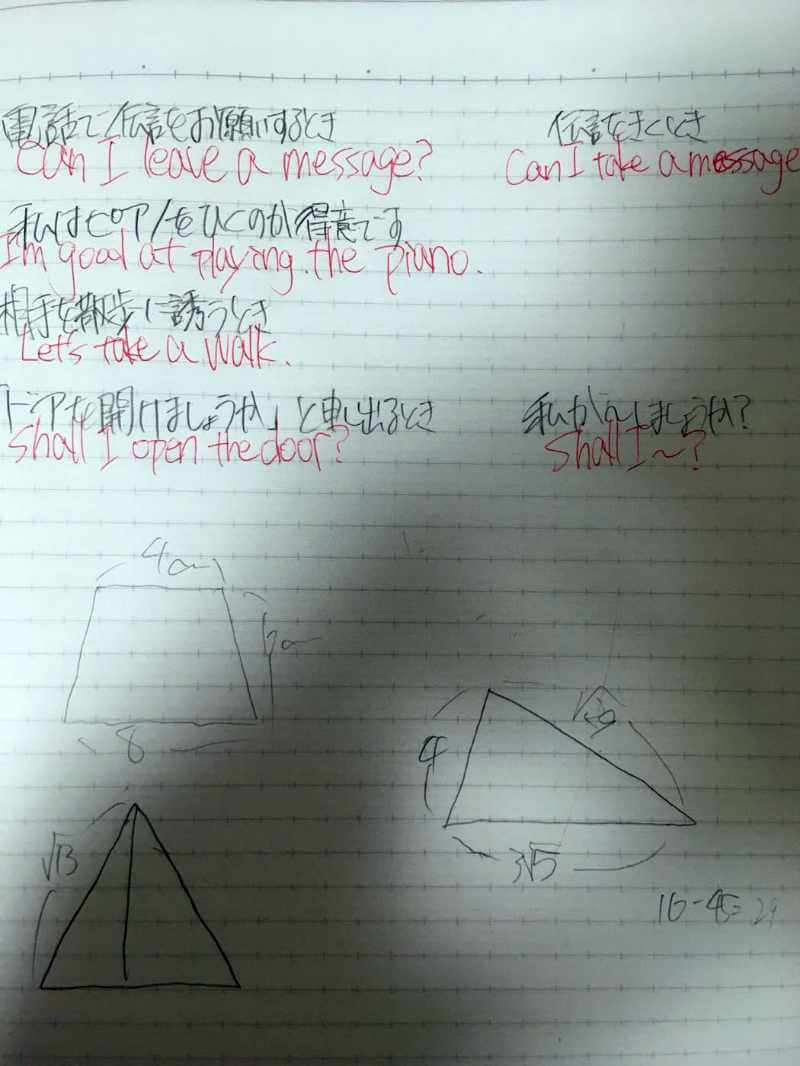 電話で伝言をお願いするとき 伝言をきくとき
Can I leave a message? Can I take a message
私はピアノをひくのが得意です
I'm good at playing the piano.
相手を散歩に誘うとき
Let's take a walk.
「ドアを開けましょうか」と申し出るとき 私が〜しましょうか?
Shall I open the door? Shall I ~?
4cm
8
4
3√5
√13
16-45=29